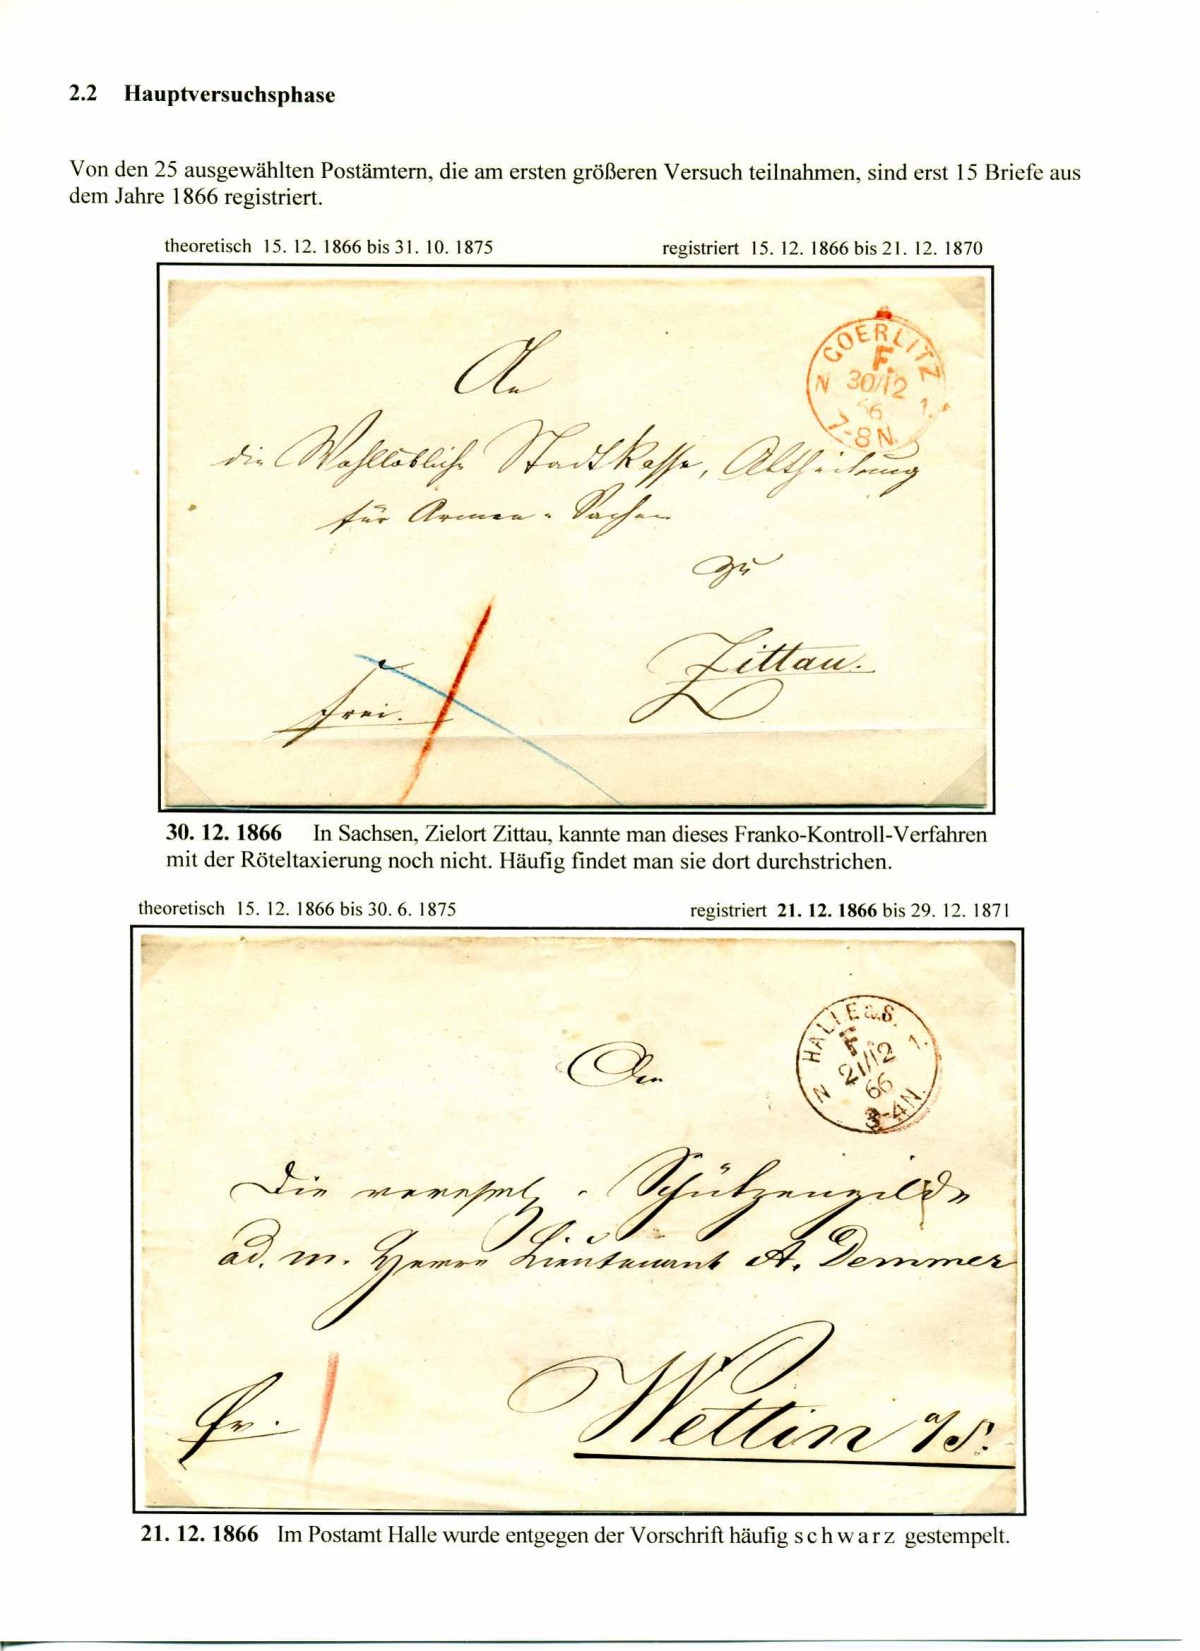 2.2 Hauptversuchsphase
Von den 25 ausgewählten Postämtern, die am ersten größeren Versuch teilnahmen, sind erst 15 Briefe aus
dem Jahre 1866 registriert.
theoretisch 15. 12. 1866 bis 31. 10. 1875 registriert 15. 12. 1866 bis 21. 12. 1870
GOERLITZ
F.
N 30/12 1.
66
7-8 N.
An
die Wohllöbliche Stadtkasse, Abtheilung
für Armen-Sachen
zu
Zittau.
frei.
30. 12. 1866 In Sachsen, Zielort Zittau, kannte man dieses Franko-Kontroll-Verfahren
mit der Röteltaxierung noch nicht. Häufig findet man sie dort durchstrichen.
theoretisch 15. 12. 1866 bis 30. 6. 1875 registriert 21. 12. 1866 bis 29. 12. 1871
HALLE a.S.
F.
N 21/12 1.
66
3-4N.
An
Die Schützengilde
ad. m. Herrn Lieutenant A. Demmer
Wettin a/S.
fr.
21. 12. 1866 Im Postamt Halle wurde entgegen der Vorschrift häufig schwarz gestempelt.